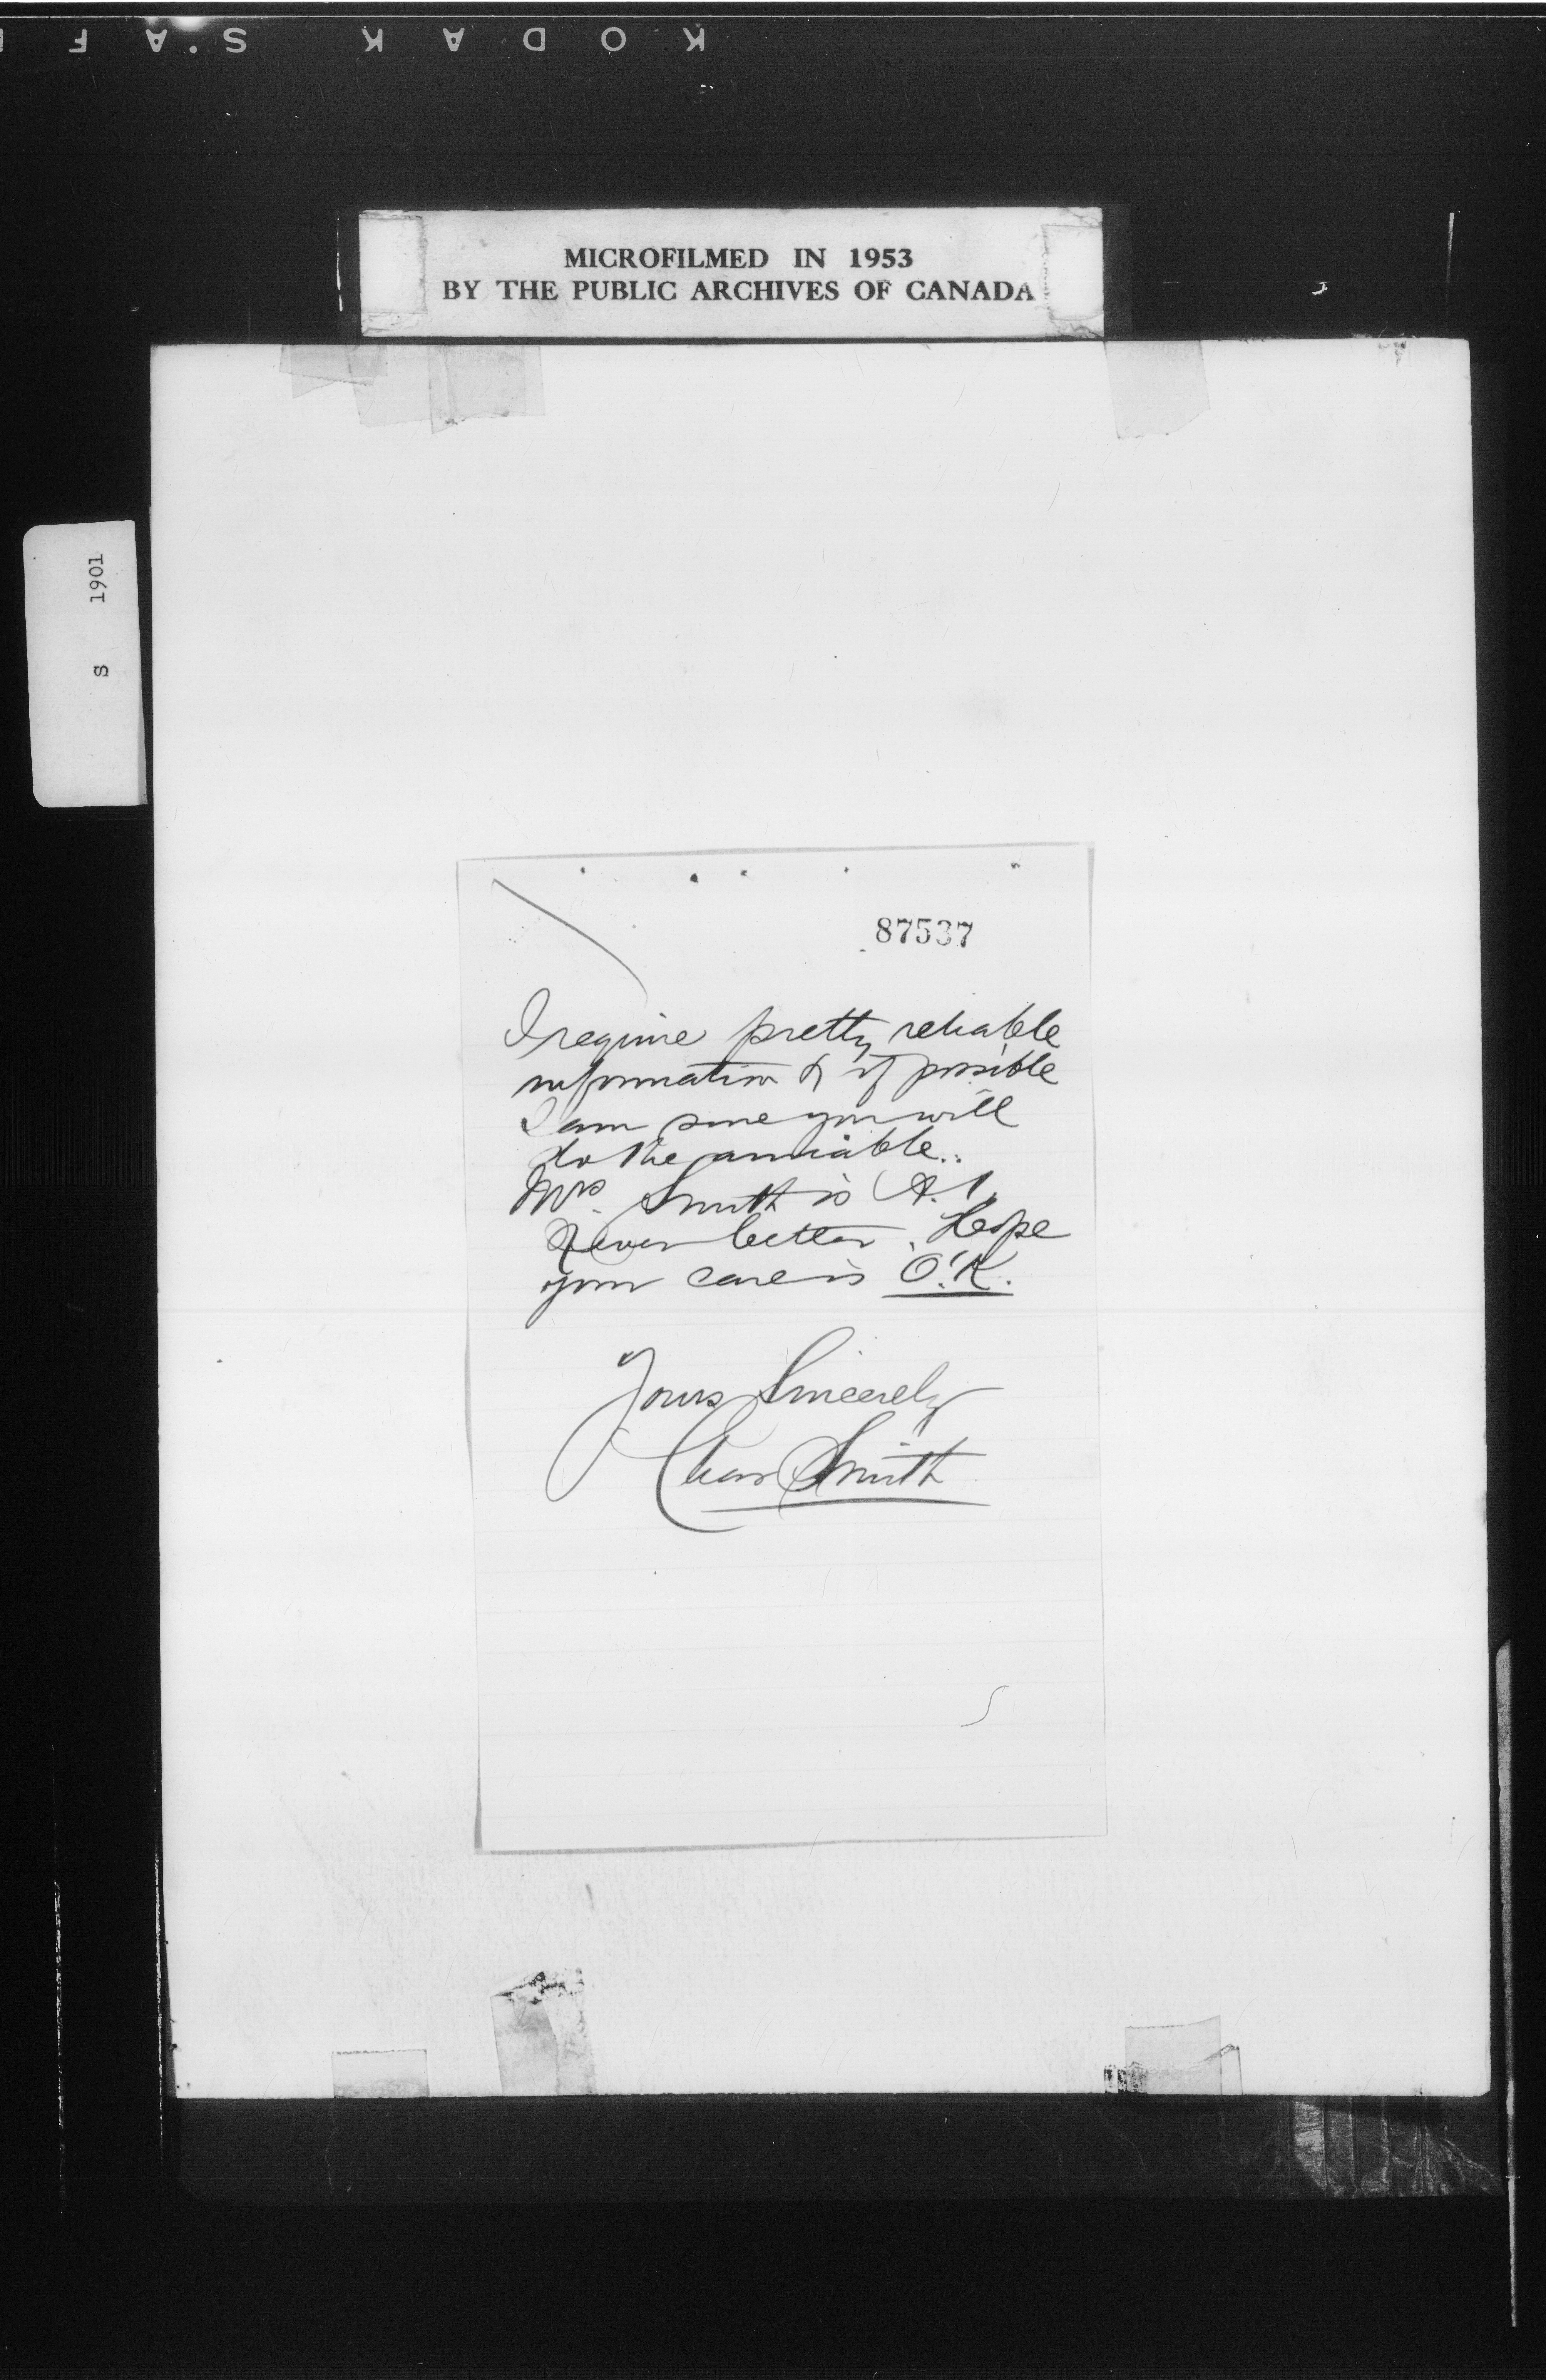 KODAK S.AF
MICROFILMED IN 1953
BY THE PUBLIC ARCHIVES OF CANADA
S 1901
87537
I require pretty reliable
information & if possible
I am sure you will
do the amiable.
Mrs. Smith is A.1.
Never better. Hope
your care is O.K.
Yours Sincerely
Chas Smith